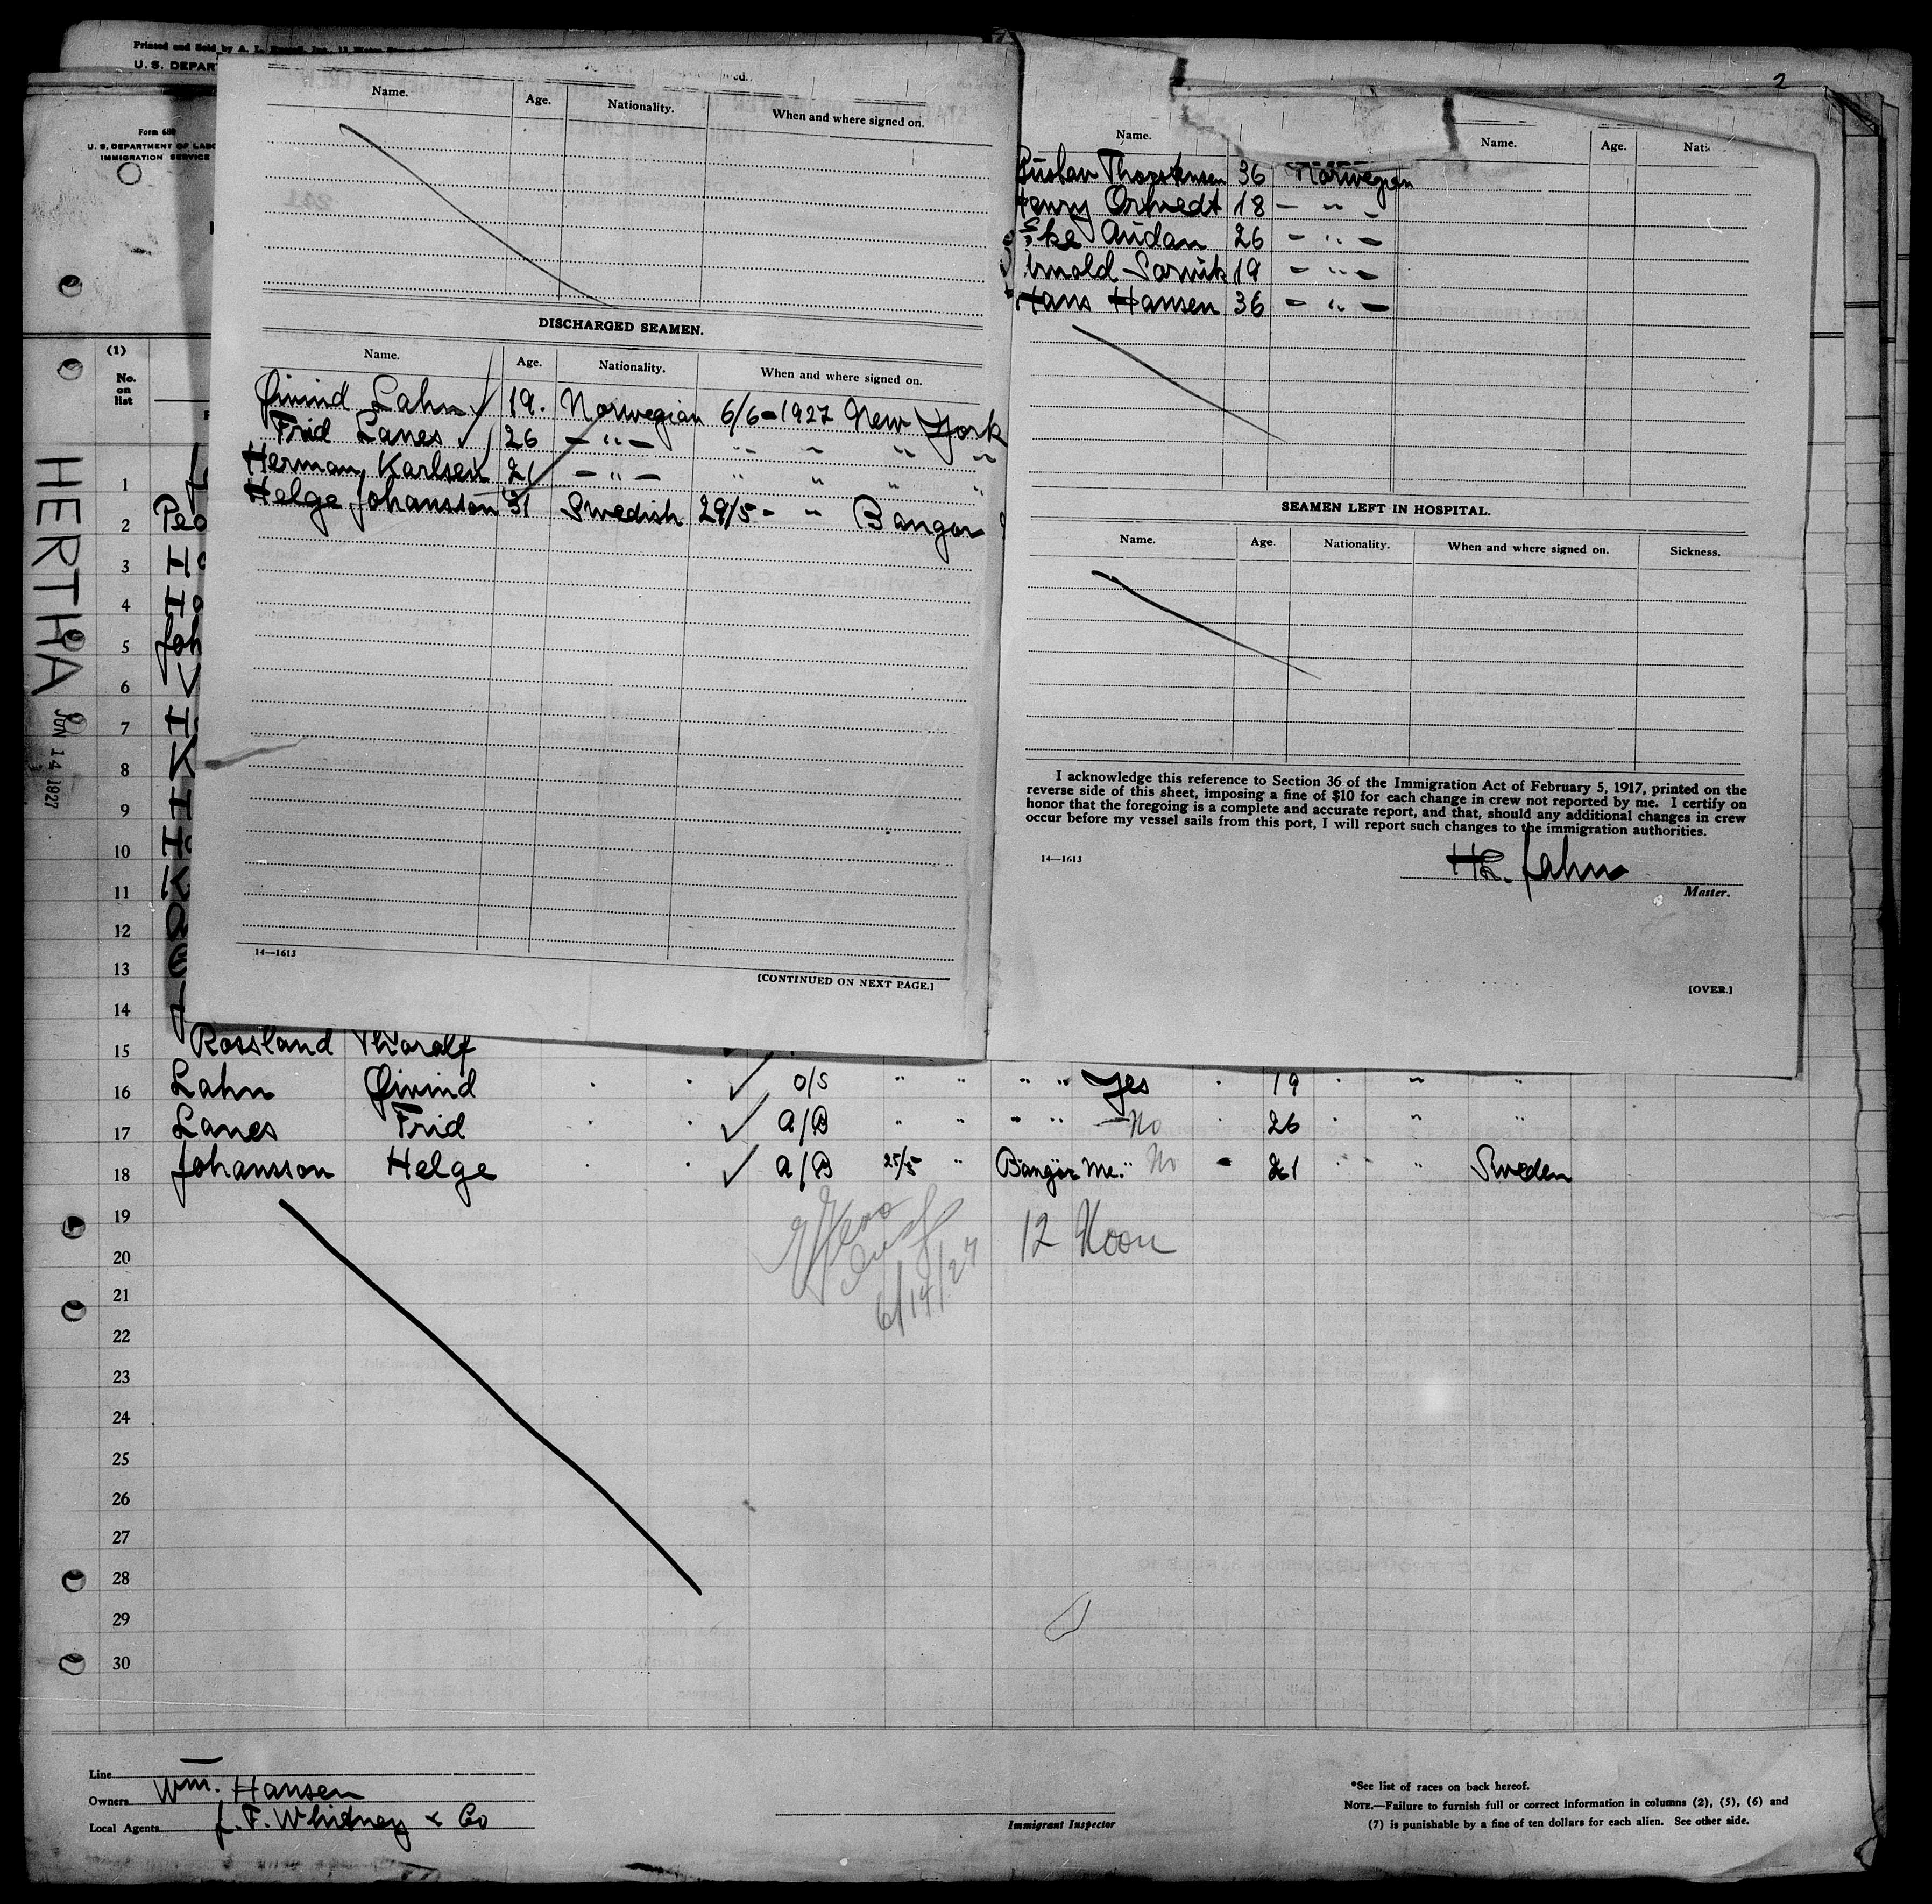 Printed and Sold by A. L.
U. S. DEPAR
Form 680
U. S. DEPARTMENT OF LABO
IMMIGRATION SERVICE
HERTHA
JUN 14 1927
(1)
No.
on
list
Name. Age. Nationality. When and where signed on.
DISCHARGED SEAMEN.
Name. Age. Nationality. When and where signed on.
Øivind Lahn 19. Norwegian 6/6-1927 New York
Frid Lanes 26 - " - " " " "
Herman Karlsen 21 - " - " " " "
Helge Johansson 31 Swedish 29/5- " Bangor
14—1613
[CONTINUED ON NEXT PAGE.]
2
Name. Name. Age. Nati
Thorstensen 36 Norwegian
18 - " -
Audan 26 - " -
19 - " -
Hans Hansen 36 - " -
SEAMEN LEFT IN HOSPITAL.
Name. Age. Nationality. When and where signed on. Sickness.
I acknowledge this reference to Section 36 of the Immigration Act of February 5, 1917, printed on the
reverse side of this sheet, imposing a fine of $10 for each change in crew not reported by me. I certify on
honor that the foregoing is a complete and accurate report, and that, should any additional changes in crew
occur before my vessel sails from this port, I will report such changes to the immigration authorities.
14—1613
Master.
[OVER.]
1
2 Peo
3 Ha
4 Ha
5 Joh
6
7
8
9
10
11
12
13
14
15 Rossland Thoralf
16 Lahn Øivind O/S " " " " Yes 19 " "
17 Lanes Frid A/B " " " " No 26 " "
18 Johansson Helge A/B 25/5 " Bangor Me. " No 21 " Sweden
19
20 12 Noon
6/14/27
21
22
23
24
25
26
27
28
29
30
Line
Owners Wm. Hansen
Local Agents J. F. Whitney & Co
Immigrant Inspector
*See list of races on back hereof.
NOTE.—Failure to furnish full or correct information in columns (2), (5), (6) and
(7) is punishable by a fine of ten dollars for each alien. See other side.